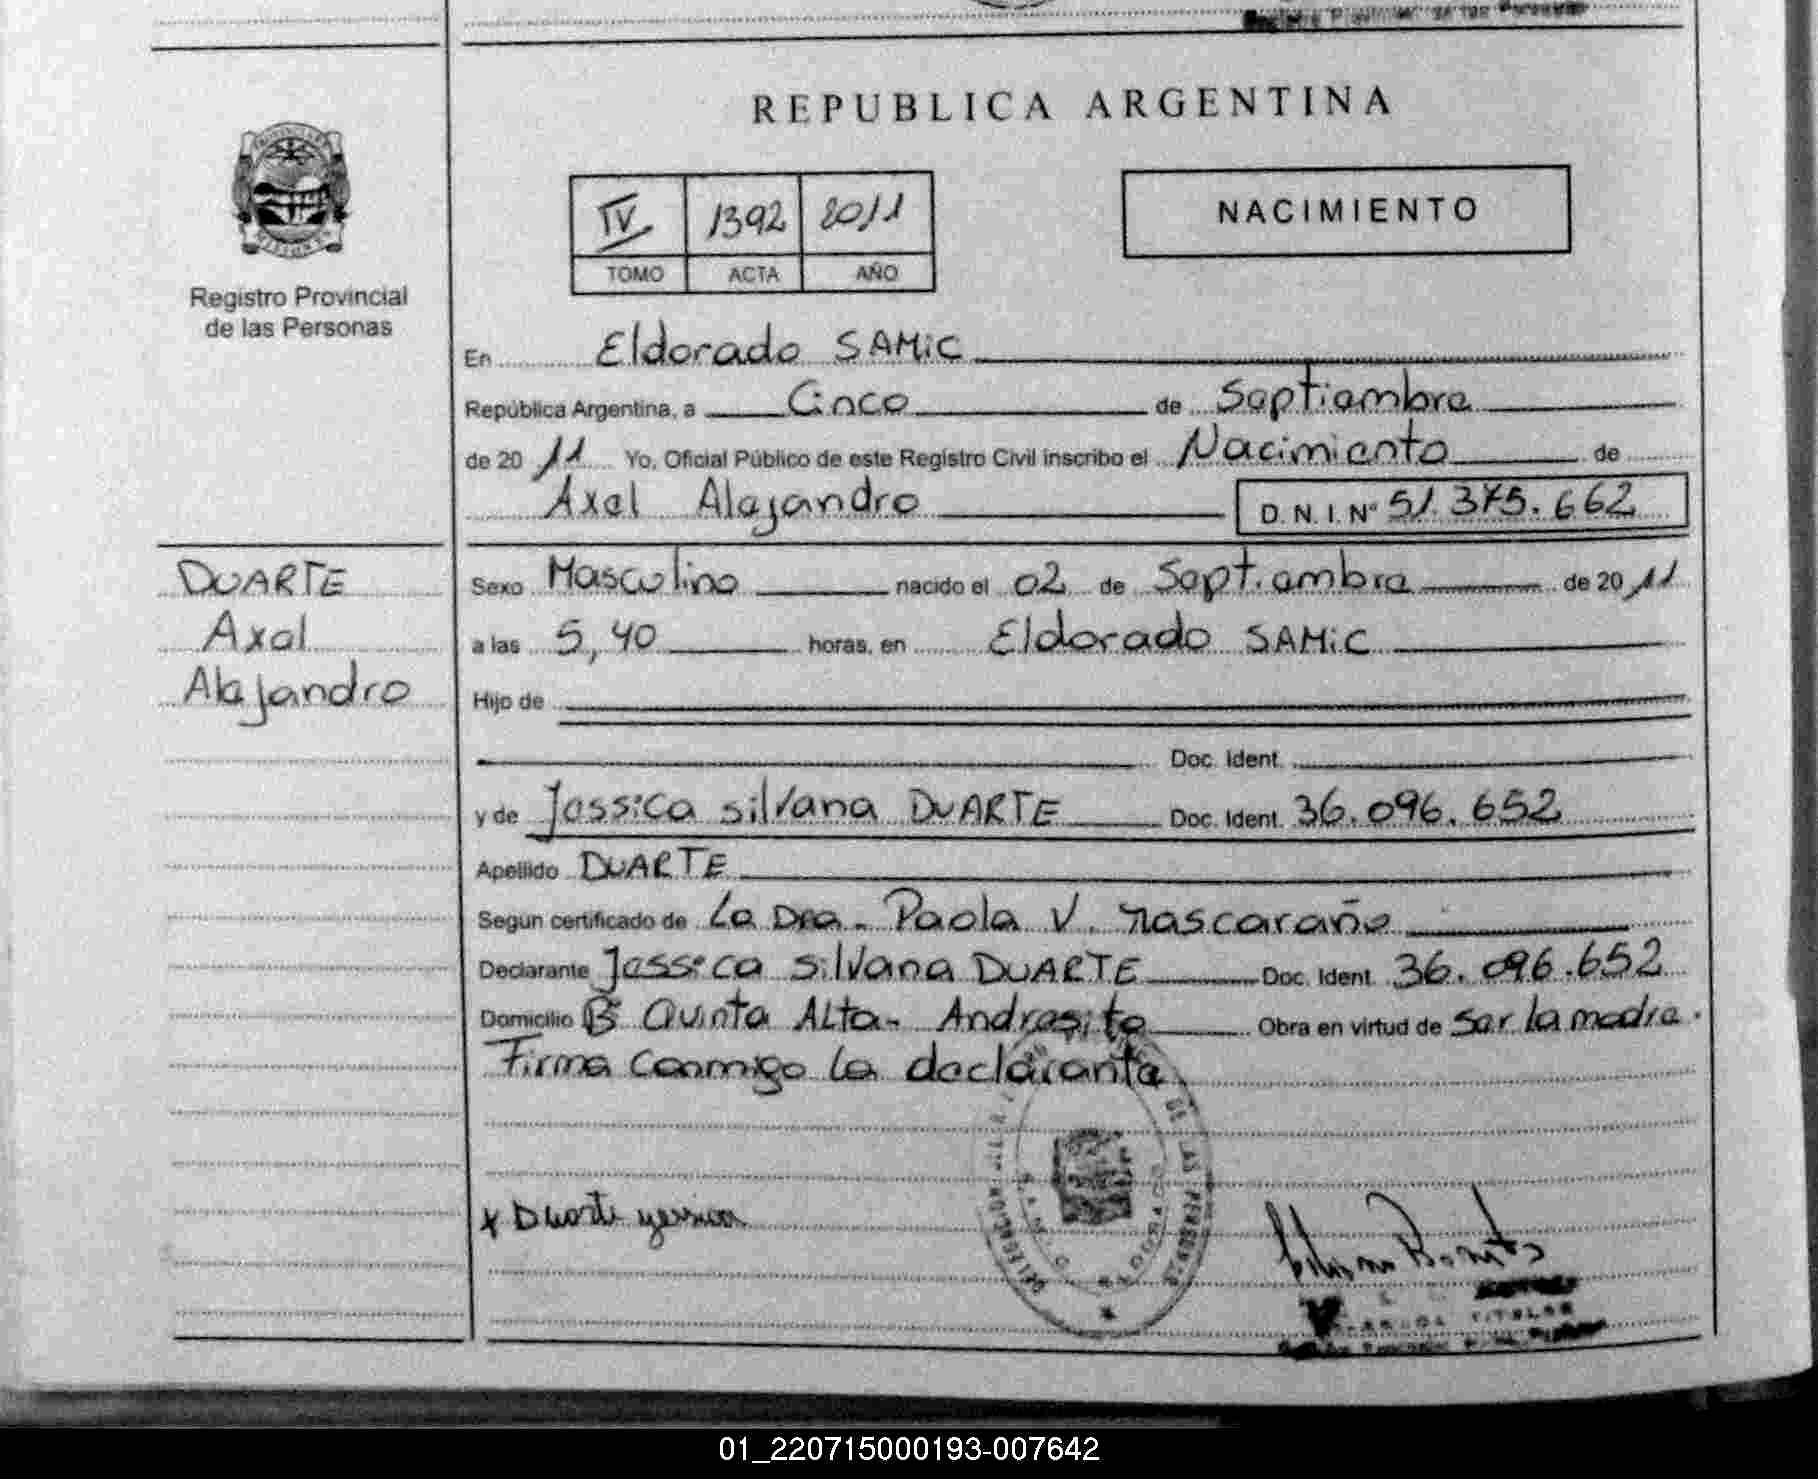 REPUBLICA ARGENTINA
IV 1392 2011
TOMO ACTA AÑO
NACIMIENTO
Registro Provincial
de las Personas
En Eldorado SAMiC
República Argentina, a Cinco de Septiembre
de 20 11 Yo, Oficial Público de este Registro Civil inscribo el Nacimiento de
Axel Alejandro D.N.I. Nº 51.375.662
DUARTE
Axel
Alejandro
Sexo Masculino nacido el 02 de Septiembre de 20 11
a las 5,40 horas, en Eldorado SAMiC
Hijo de
Doc. Ident.
y de Jessica Silvana DUARTE Doc. Ident. 36.096.652
Apellido DUARTE
Segun certificado de La Dra. Paola V.
Declarante Jessica Silvana DUARTE Doc. Ident. 36.096.652
Domicilio Bº Quinta Alta - Andresito Obra en virtud de ser la madre.
Firma conmigo la declarante
x Duarte yessica
DE LAS PERSONAS
TITULAR
01_220715000193-007642